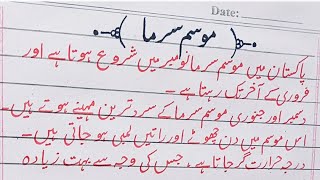 Date:
موسم سرما
پاکستان میں موسم سرما نومبر میں شروع ہوتا ہے اور
فروری کے آخر تک رہتا ہے۔
دسمبر اور جنوری موسم سرما کے سرد ترین مہینے ہوتے ہیں۔
اس موسم میں دن چھوٹے اور راتیں لمبی ہو جاتی ہیں۔
درجہ حرارت گر جاتا ہے، جس کی وجہ سے بہت زیادہ